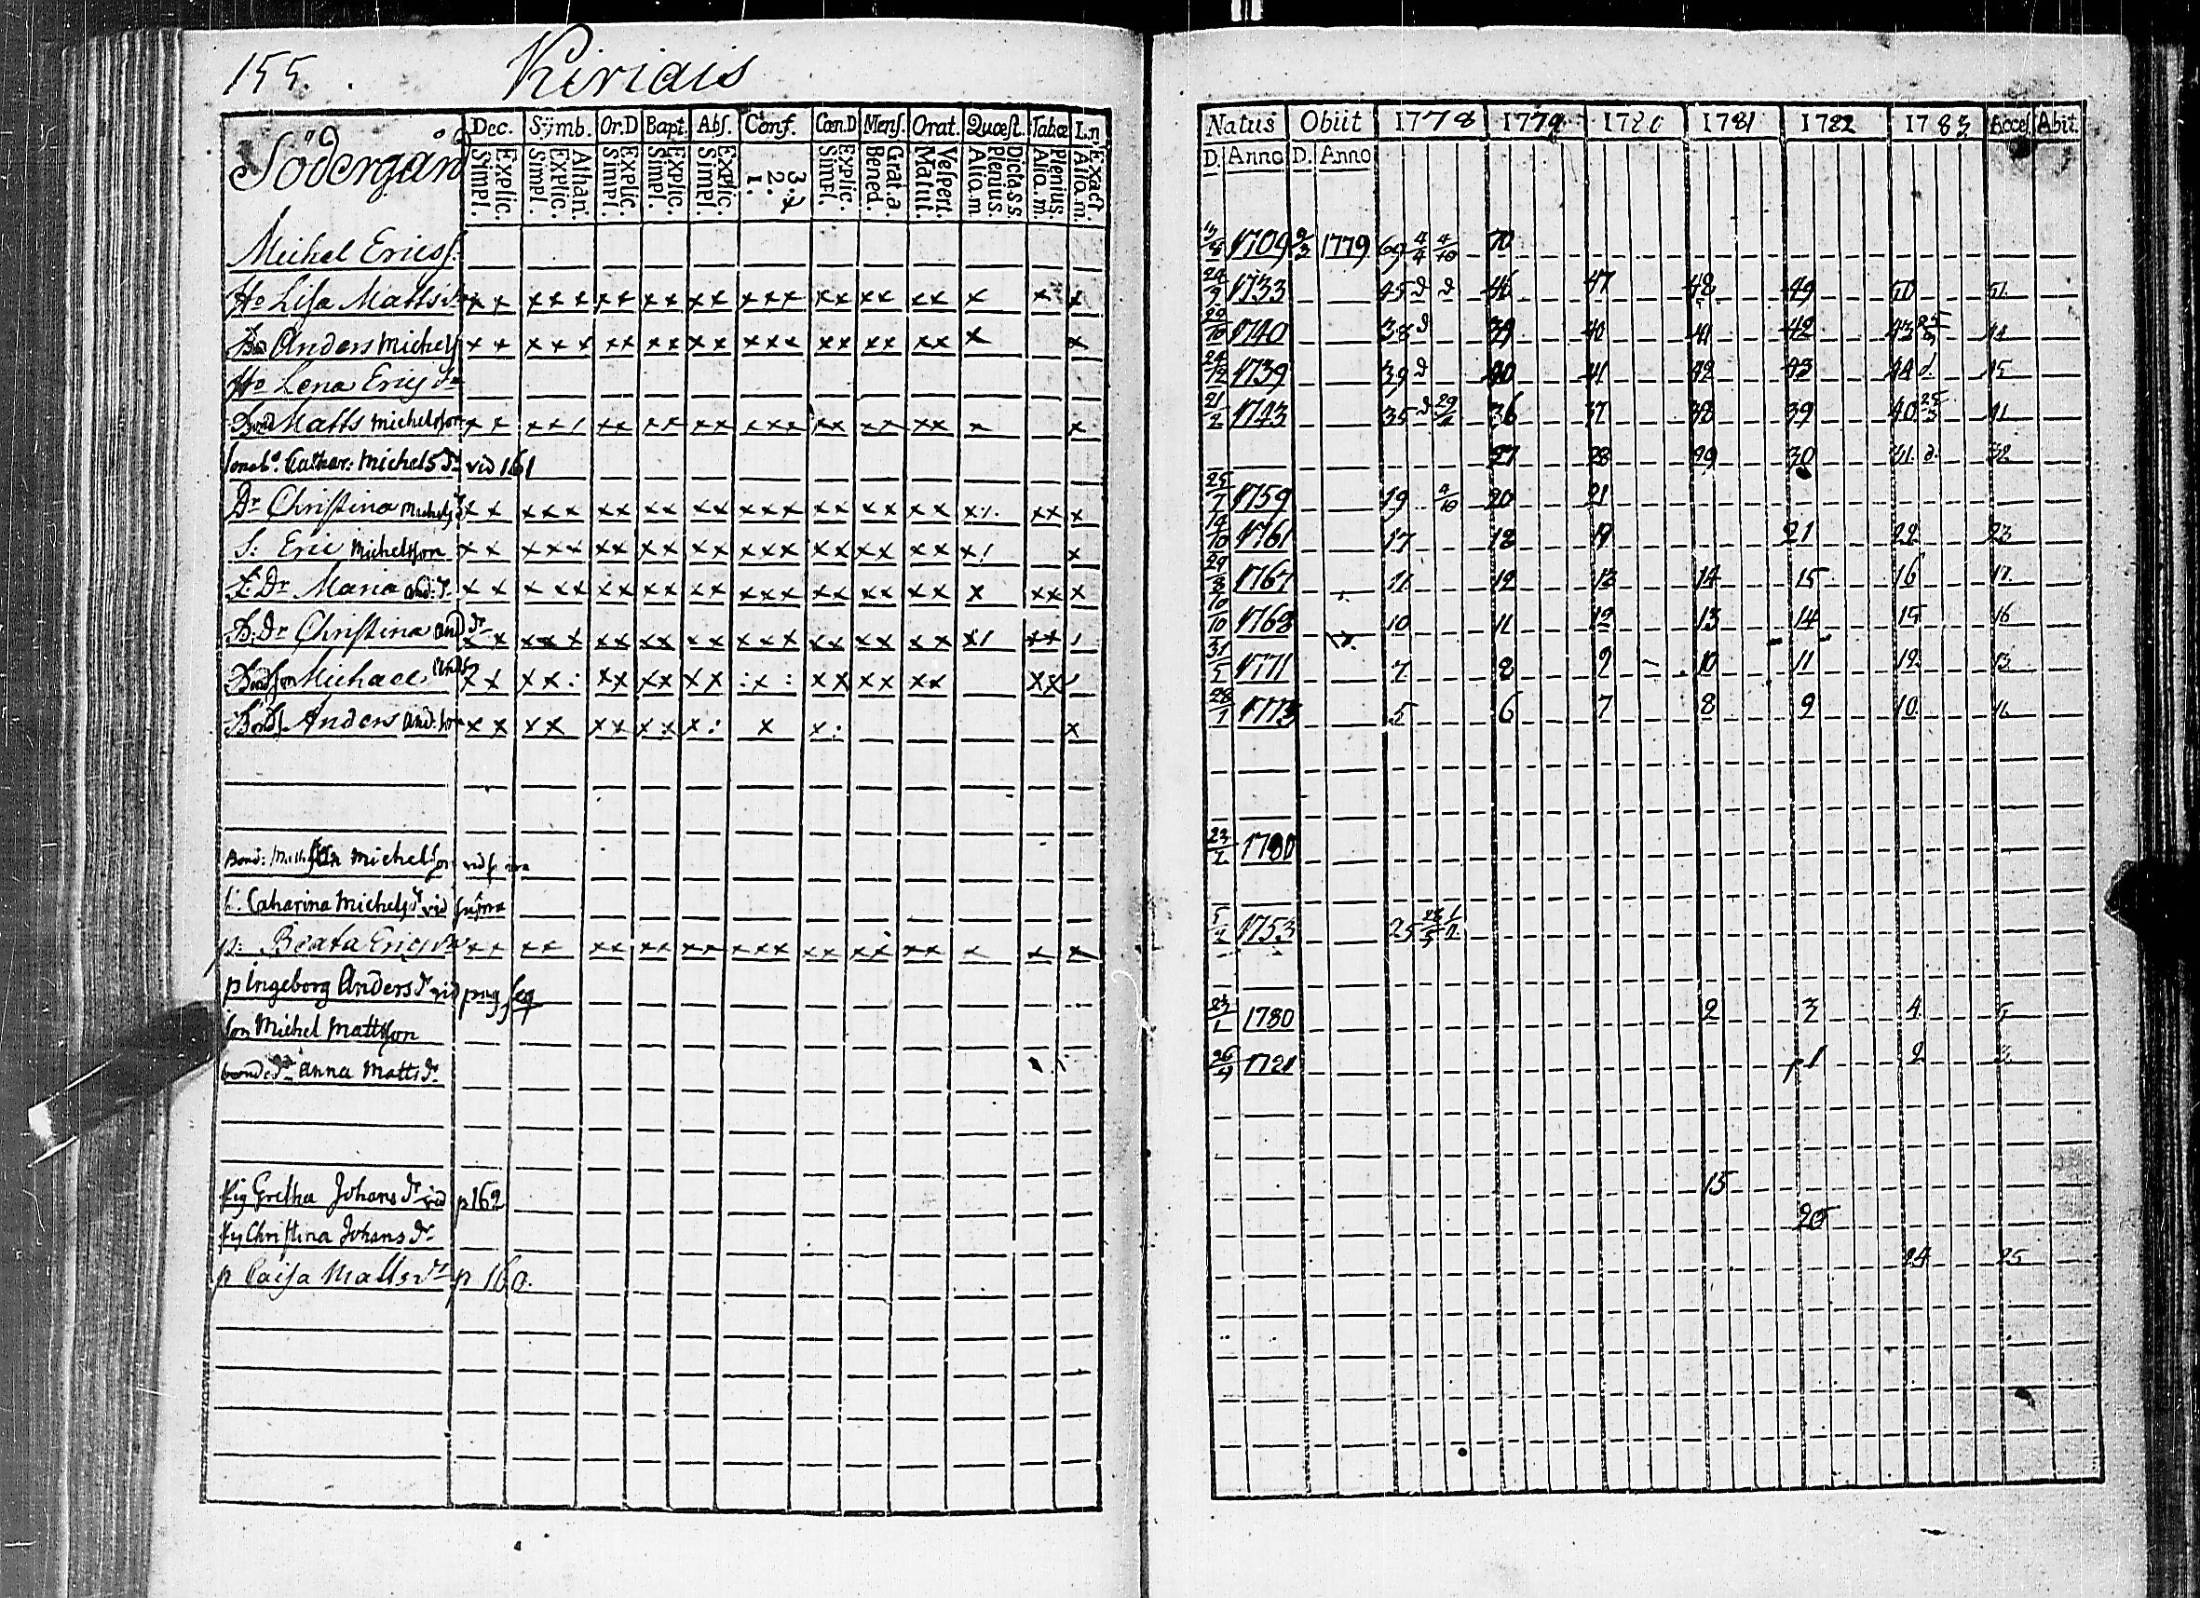 155.
Kiriais
Södergård
Dec. Symb. Or.D Bapt. Abs. Conf. Cœn.D Mens. Orat. Quæst. Tabœ I.n
Simpl. Explic. Simpl. Explic. Athan. Simpl. Explic. Simpl. Explic. Simpl. Explic. 1. 2. 3. Simpl. Explic. Bened. Grat.a. Matut. Vespert. Alio.m. Plenius. Dicta.s.s. Alia.m. Plenius. Alia.m. Exact.
Natus Obiit 1778 1779 1780 1781 1782 1783 Acces. Abit.
D. Anno D. Anno
Michel Ericss. 1709 2/3 1779 69 4/4 4/10 70
Ho Lisa Mattsdr x x x x x x x x x x x x x x x x x x x x x x x 24/9 1733 45 d d 46 47 48 49 50 51
Bo Anders Michels x x x x x x x x x x x x x x x x x x x x x x 29/10 1740 38 d 39 40 41 42 43 44
Ho Lena Ericsdr 24/12 1739 39 d 40 41 42 43 44 d. 45
Bond Matts Michelsson x x x x / x x x x x x x x x x x x x x x x x x 21/2 1743 35 d 36 37 38 39 40 41
Cathar. Michelsdr vid 161 27 28 29 30 31 d. 32
Dr Christina Michelsdr x x x x x x x x x x x x x x x x x x x x x x x x 25/7 1759 19 4/10 20 21
S: Eric Michelsson x x x x x x x x x x x x x x x x x x x x x / x 1761 17 18 19 21 22 23
B: Dr Maria And: dr x x x x x x x x x x x x x x x x x x x x x x x x 29/3 1767 11 12 13 14 15 16 17
B: Dr Christina And dr x x x x x x x x x x x x x x x x x x x x x / x x / 10/10 1768 10 11 12 13 14 15 16
Bondson Michael And:son x x x x : x x x x x x : x : x x x x x x x x 31/5 1771 7 8 9 10 11 12 13
Bonds. Anders And: son x x x x x x x x x : x x : x 28/1 1773 5 6 7 8 9 10
Michelsson 23/2 1780
Catharina Michelsdr vid
p: Beata Ericsdr x x x x x x x x x x x x x x x x x x x x x x 5/2 1753 25
p Ingeborg Andersdr vid pag seq
son Michel Mattsson 1780 2 3 4 5
bonde dr Anna Mattsdr 26/9 1781 1 2 3
Pig Gretha Johansdr vid p 162 15
Pig Christina Johansdr 20
p Caisa Mattsdr p 160. 24 25